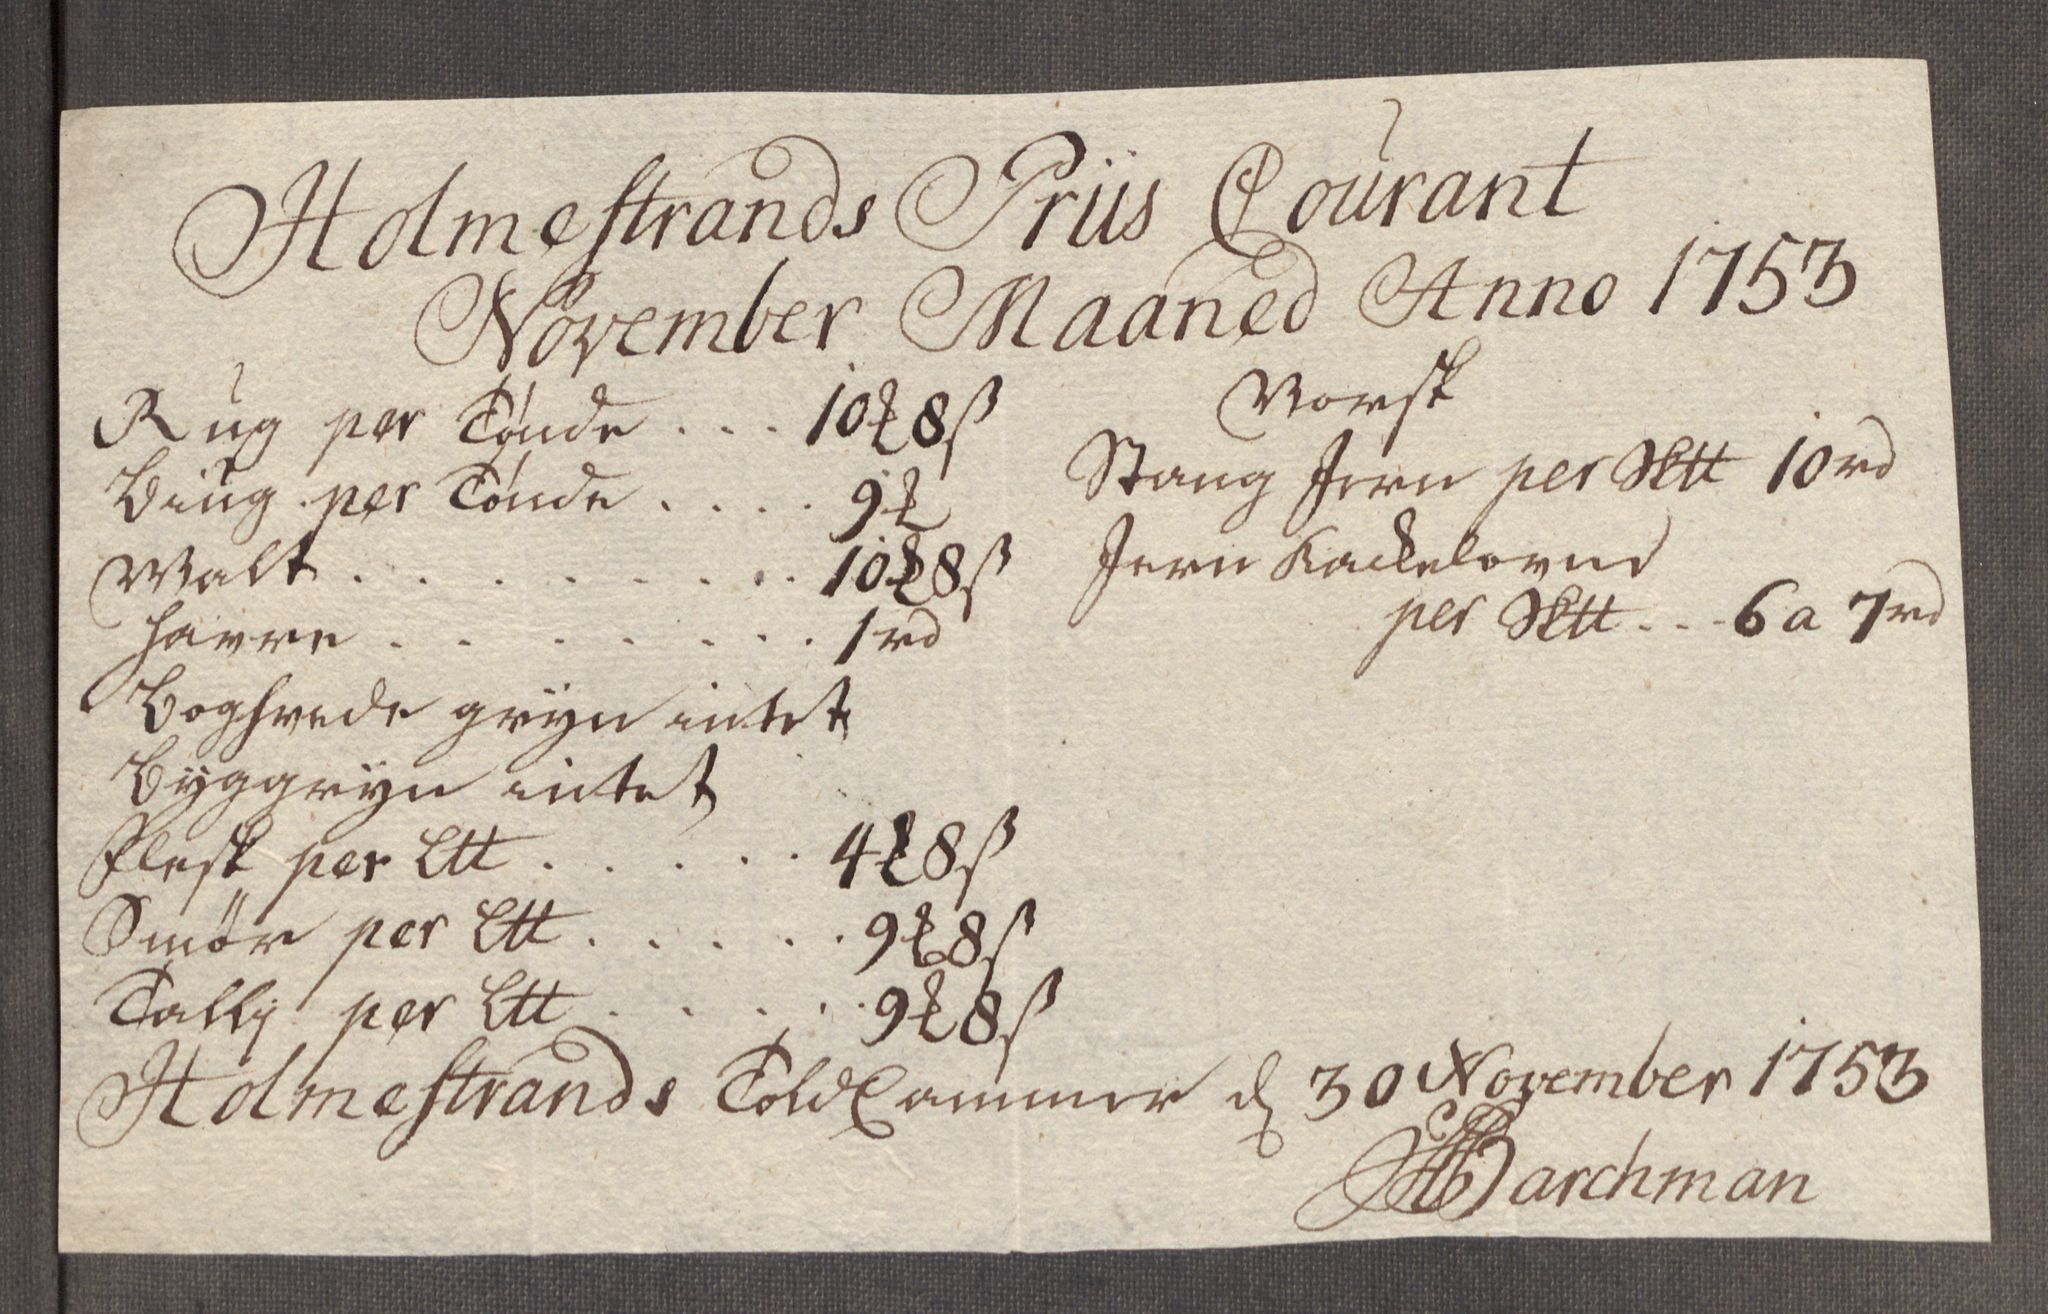 Holmestrands Priis Courant
November Maaned Anno 1753
Rug per Tønde . . . 10 ₰ 8 ß
Biug per Tønde . . . . 9 ₰
Malt . . . . . . . . 10 ₰ 8 ß
Havre . . . . . . . 1 rd
Boghvede gryn intet
Byggryn intet
Flesk per Ltt . . . . . 4 ₰ 8 ß
Smör per Ltt . . . . . 9 ₰ 8 ß
Tallij per Ltt . . . . . 9 ₰ 8 ß
Norsk
Stang Jern per Sktt 10 rd
Jern Kackelovne
per Sktt . . . 6 a 7 rd
Holmestrands Told Cammer d 30 November 1753
Barchman